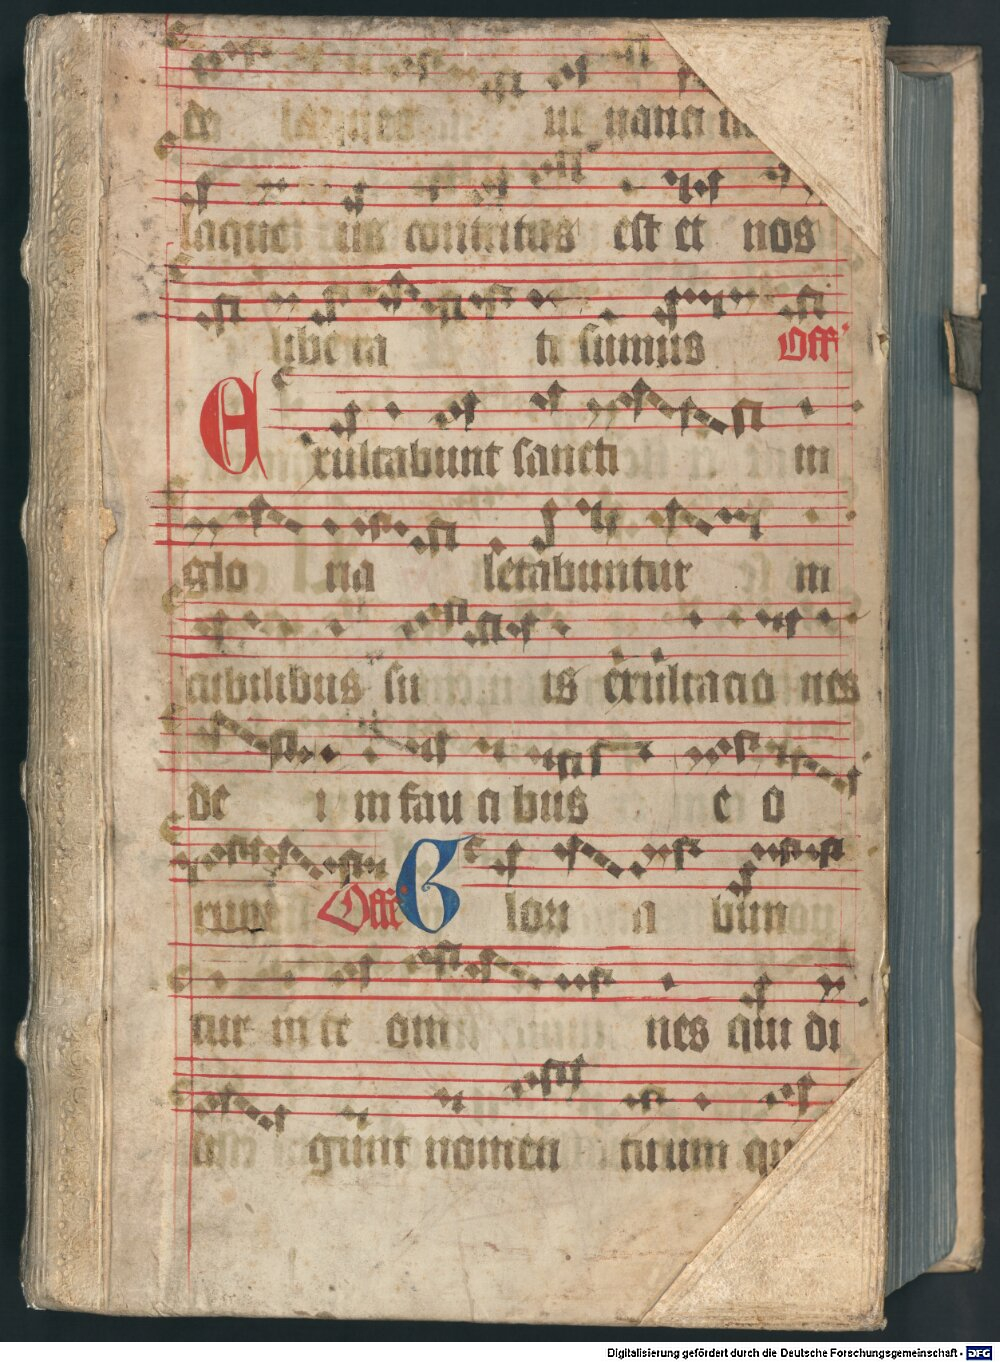 de laqueo ue nanci
laque us contritus est et nos
libera ti sumus Off
Exultabunt sancti in
glo ria letabuntur in
cubilibus su is exultacio nes
de i in fau ci bus e o
rum Offe Glori a bun
tur in te om nes qui di
ligunt nomen tuum qu
Digitalisierung gefördert durch die Deutsche Forschungsgemeinschaft - DFG